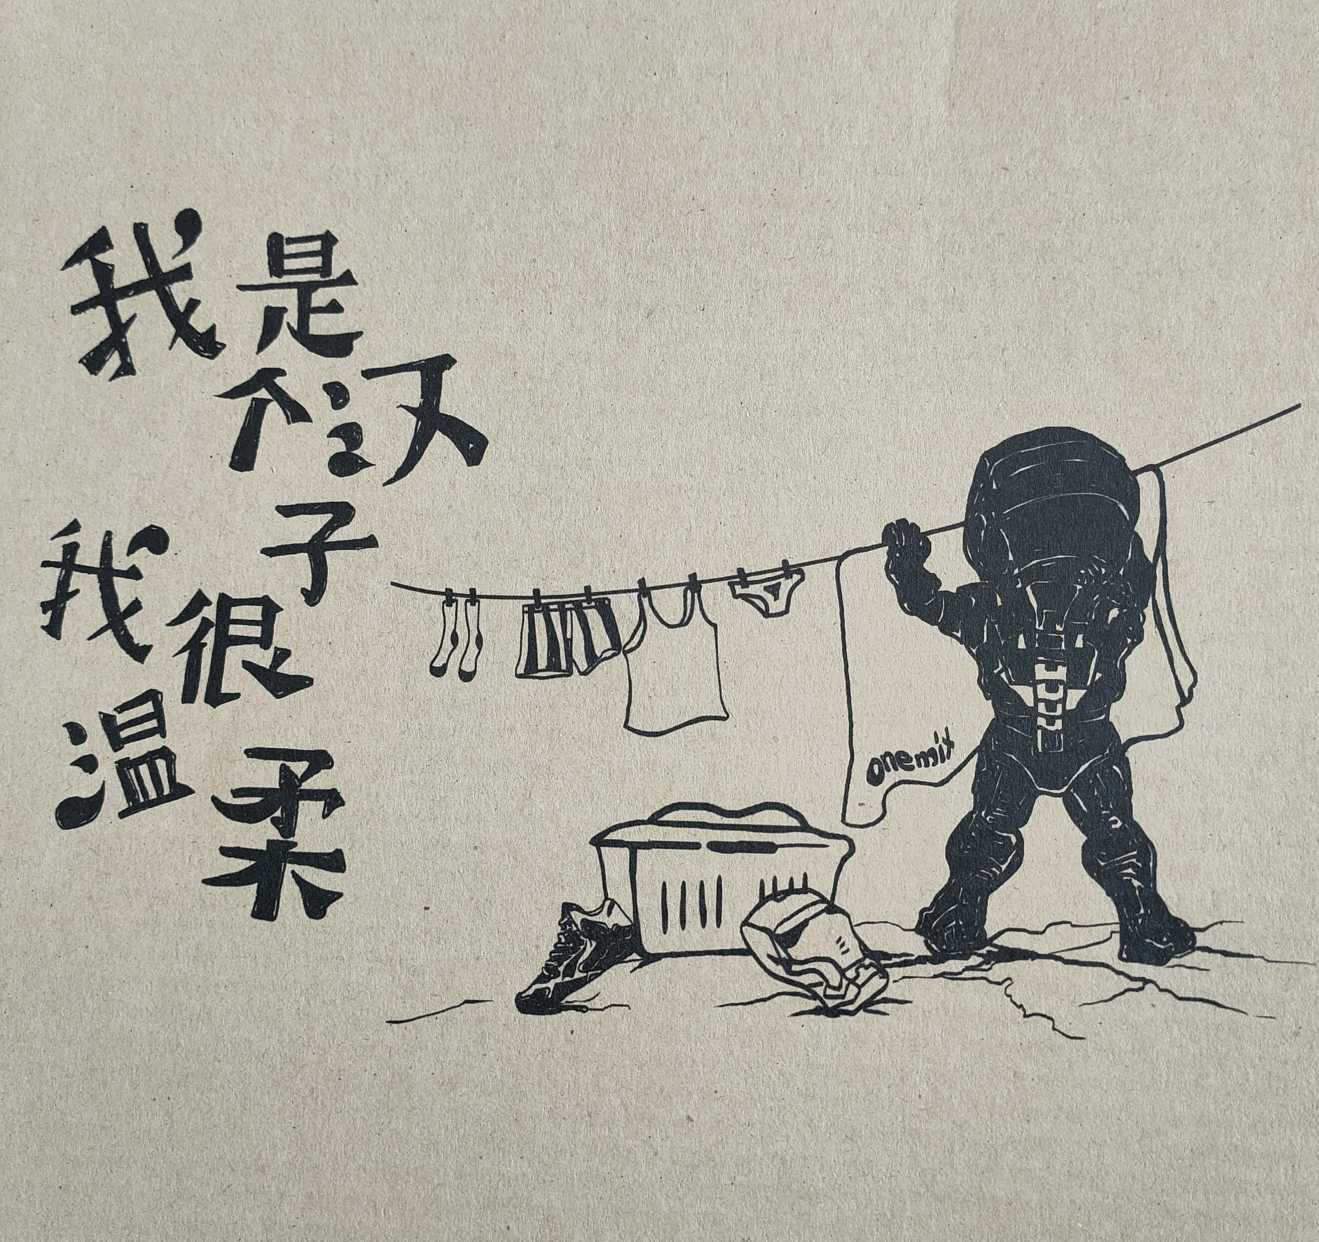 我是个汉子
我很温柔
onemix